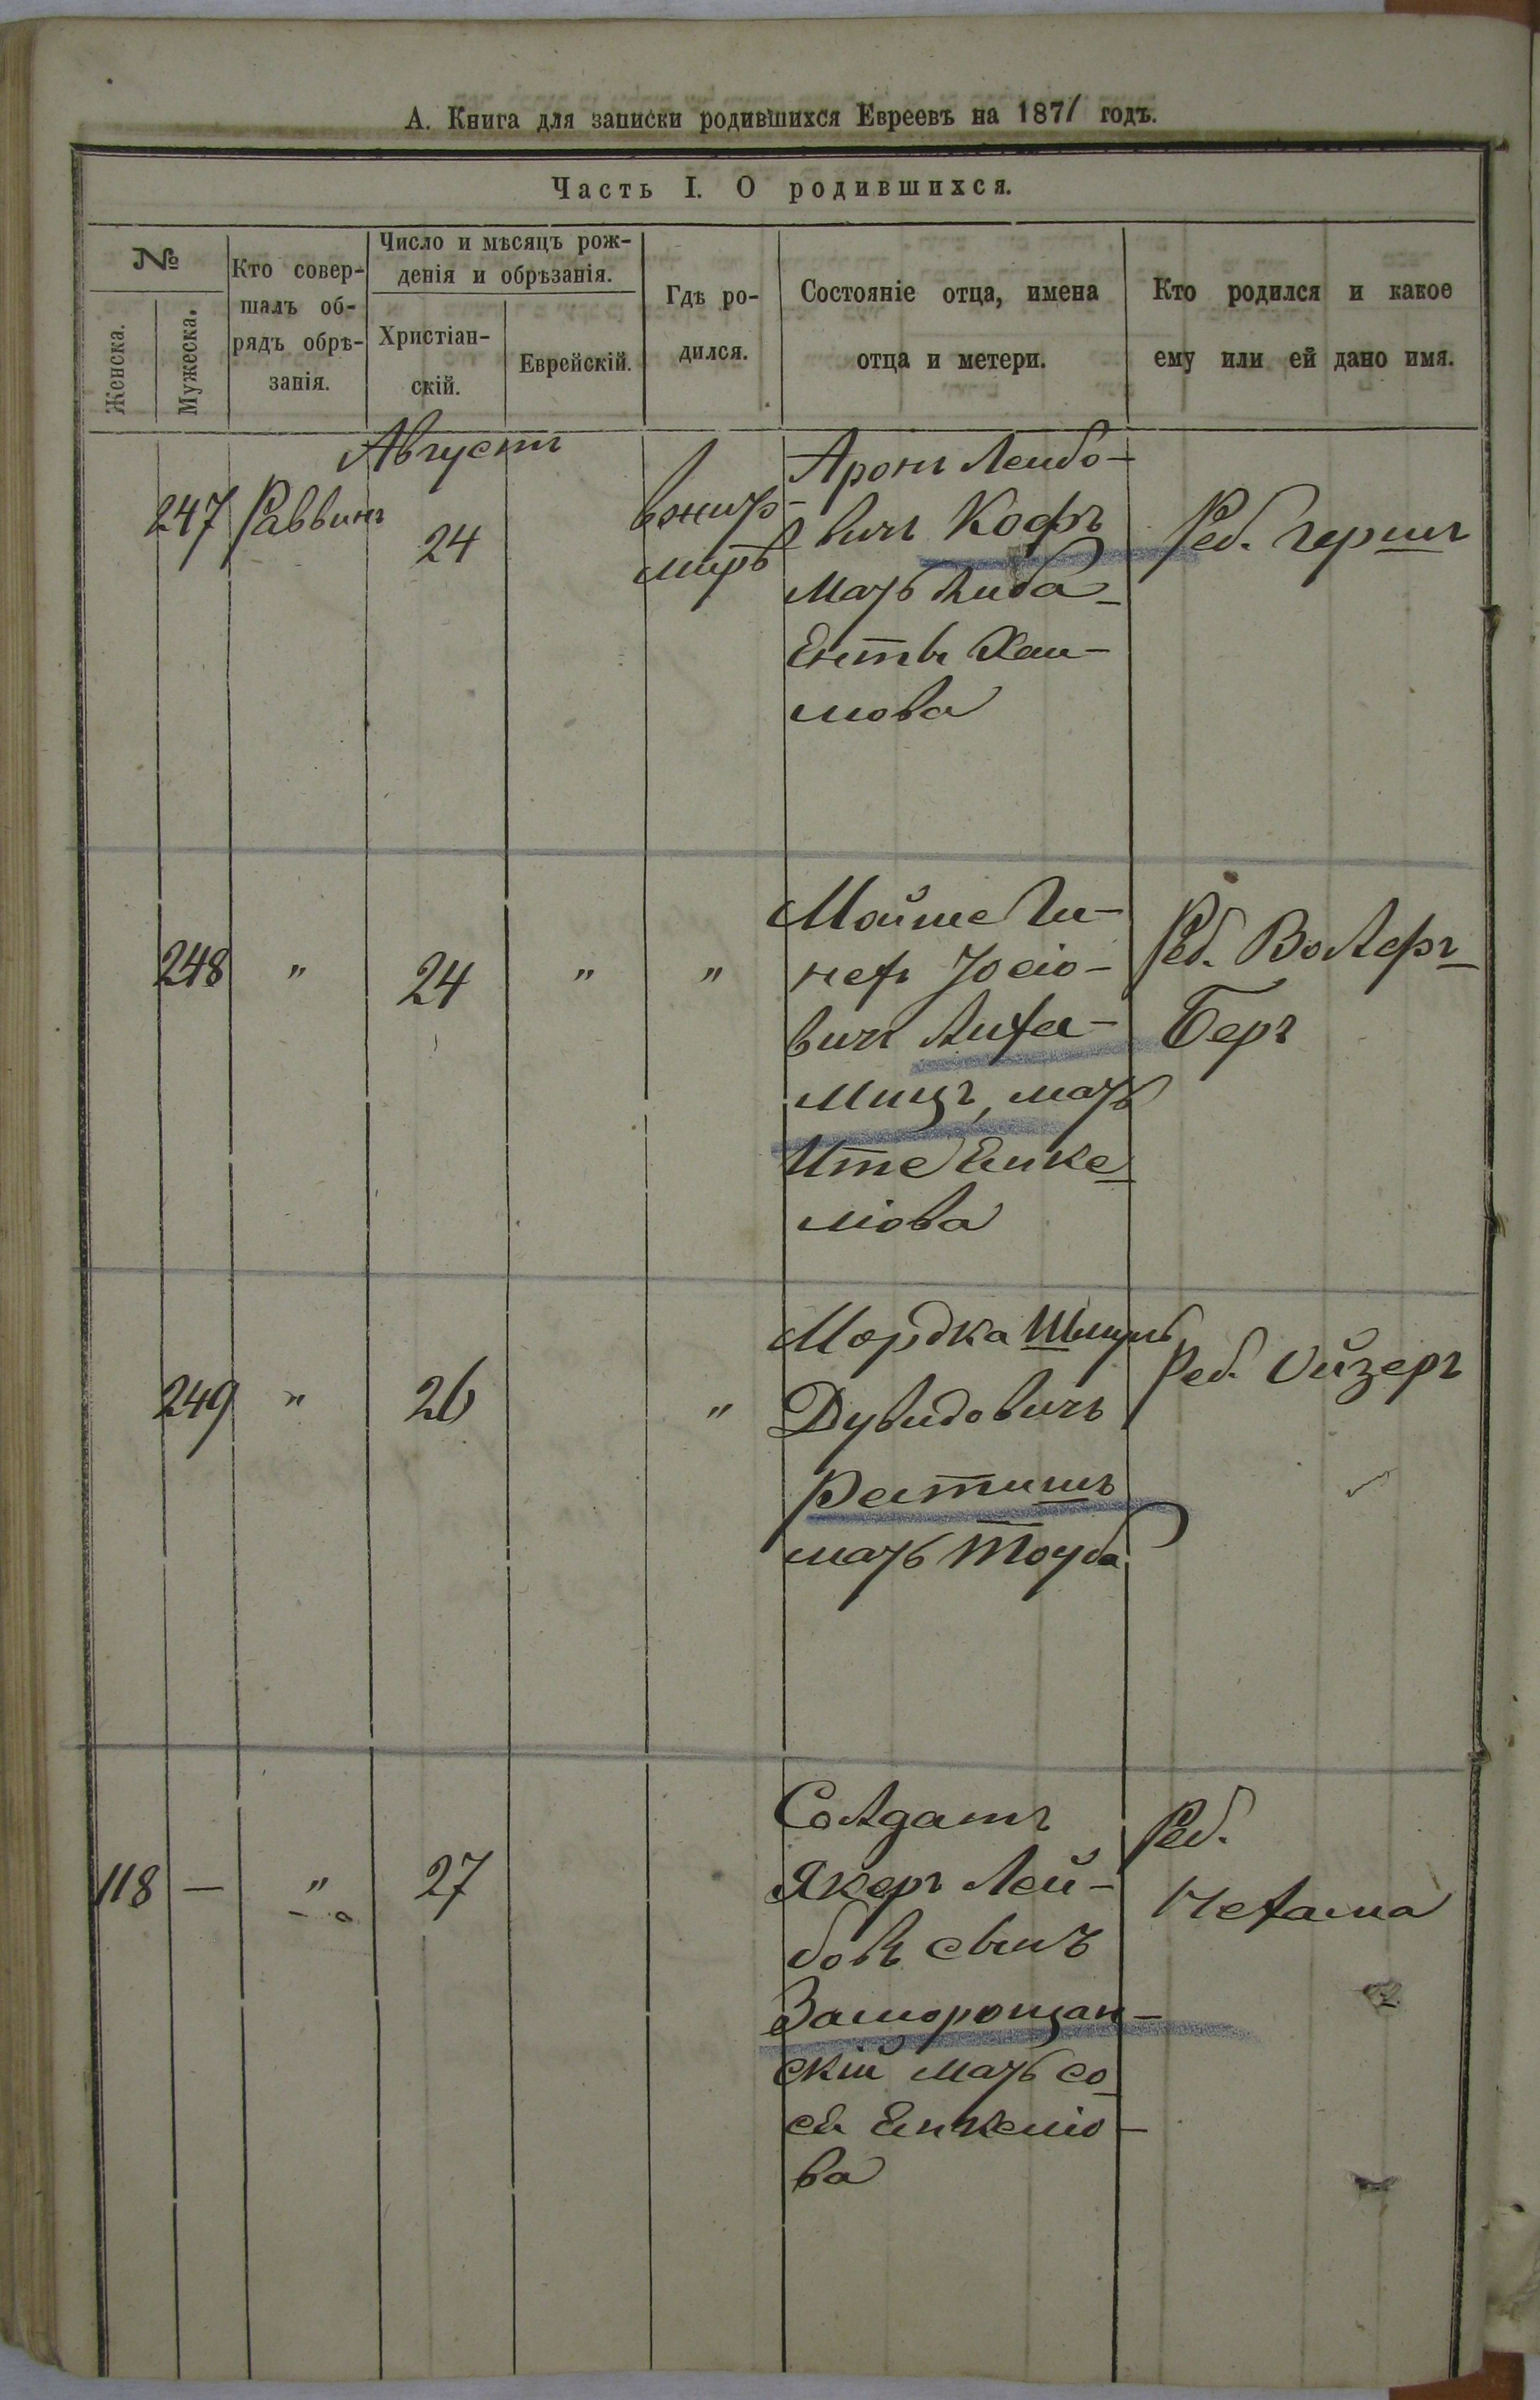 А. Книга для записки родившихся Евреевъ на 1871 годъ.
Часть I. О родившихся.
№
Женска.
Мужеска.
Кто совер-
шалъ об-
рядъ обрѣ-
занія.
Число и мѣсяцъ рож-
денія и обрѣзанія.
Христіан-
скій.
Еврейскій.
Гдѣ ро-
дился.
Состояніе отца, имена
отца и метери.
Кто родился и какое
ему или ей дано имя.
Августъ
247 Раввинъ
24
мирѣ
Аронъ Лейбо-
вичъ Кофъ
мать Либа
Енты Хаи-
мова
Реб. Гершъ
248 " 24 " "
Мойше Ги-
Іосіо-
вичъ Лифа-
мать
Ите Енке
ліова
Реб. Волфъ
Беръ
249 " 26 "
Мордка Шмуль
Дувидовичъ
Ратишъ
мать Тоуба
Реб. Ойзеръ
118 — " 27
Солдатъ
Якеръ Лей-
бовъ сынъ
Заморощан-
скій мать Со
сы Енкеліо-
ва
Реб.
Нехама